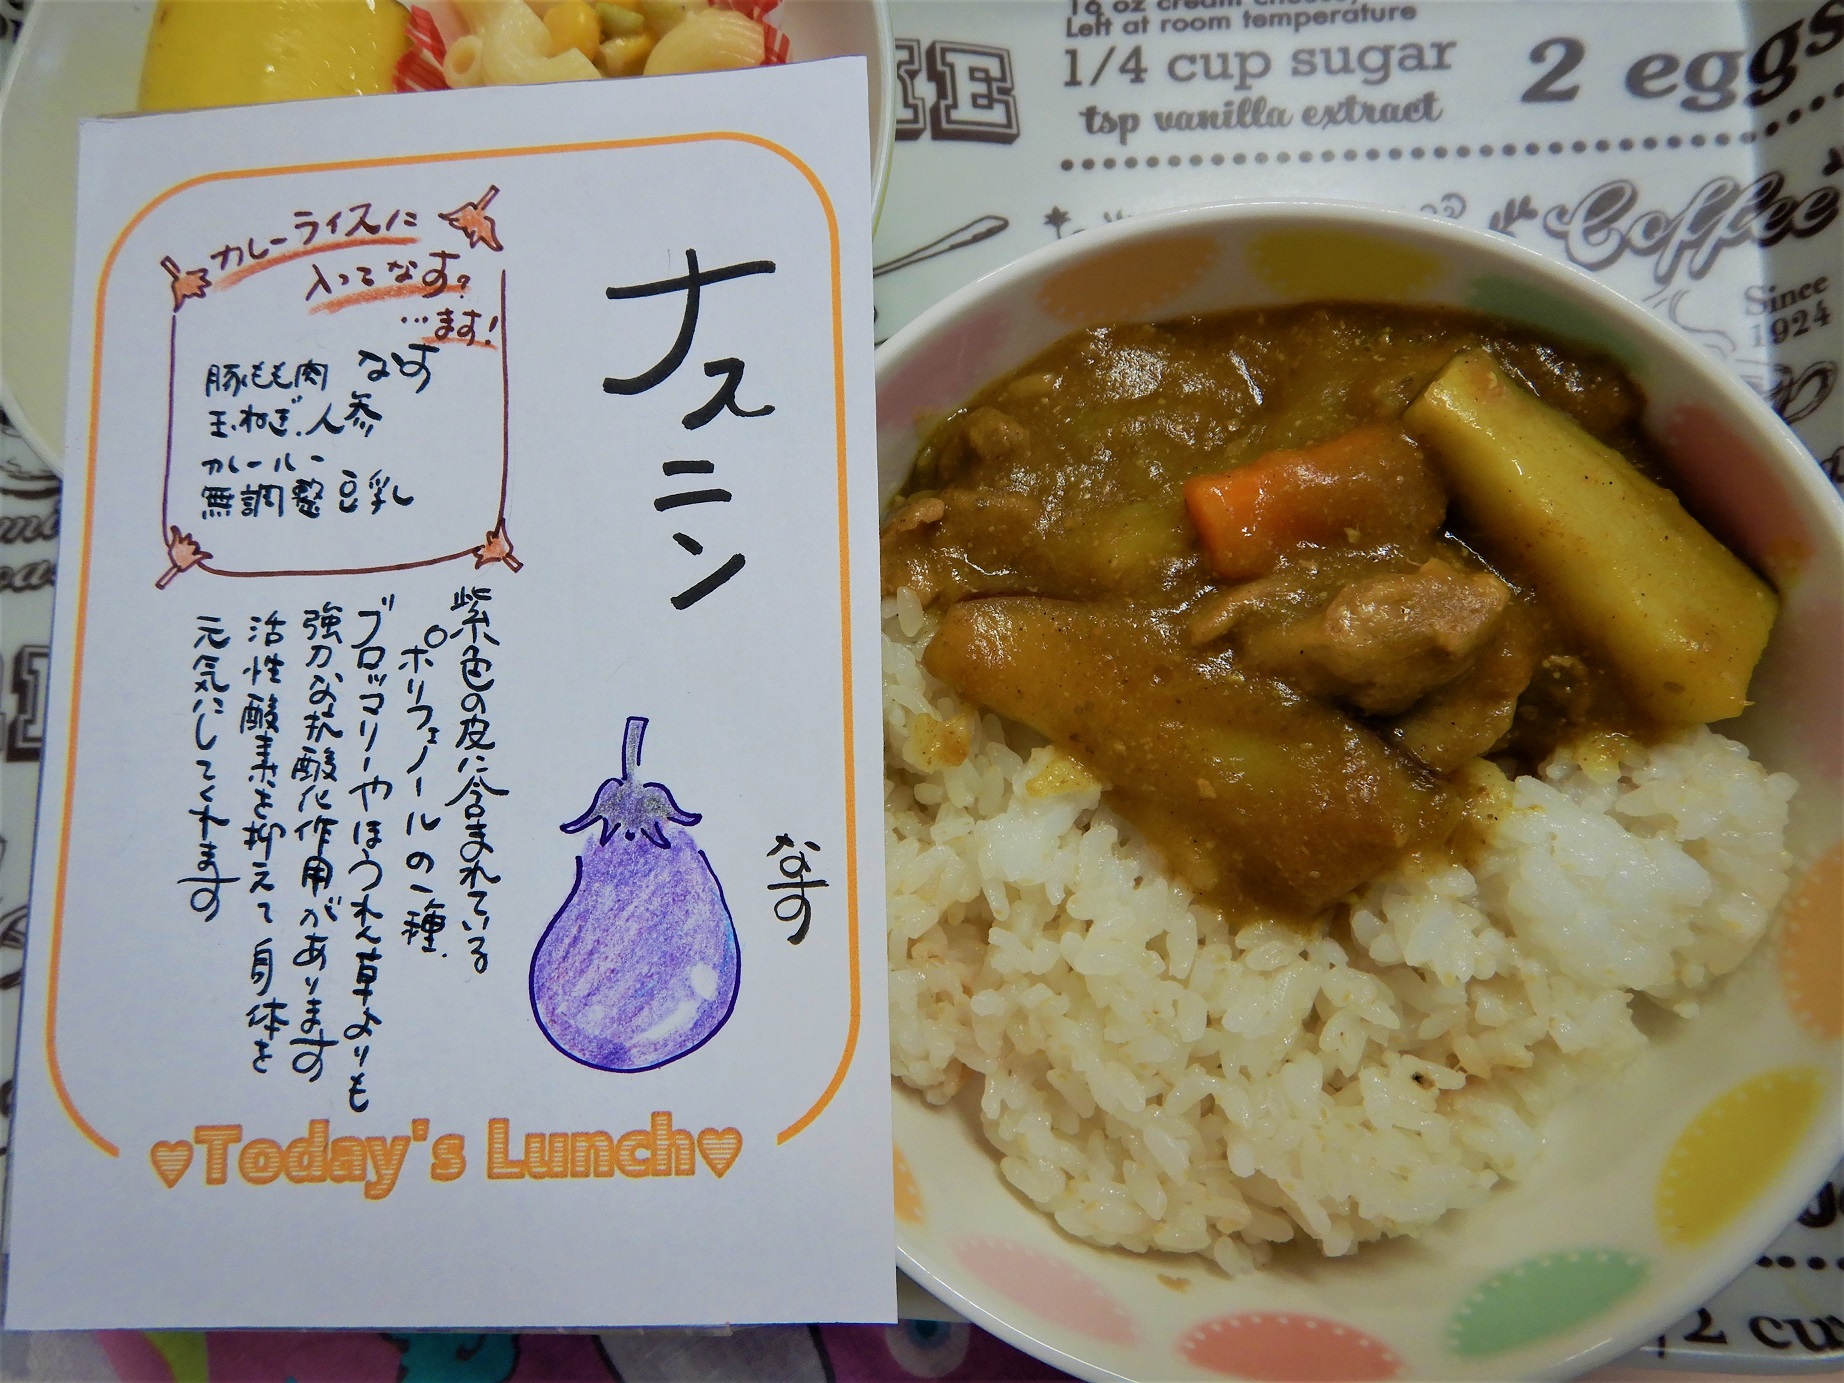 ナスニン
なす
カレーライスに
入ってなす?
…ます!
豚もも肉 なす
玉ねぎ、人参
カレールー
無調整豆乳
紫色の皮に含まれている
ポリフェノールの一種.
ブロッコリーやほうれん草よりも
強力な抗酸化作用があります
活性酸素を抑えて身体を
元気にしてくれます
♥Today's Lunch♥
16 oz cream cheese,
Left at room temperature
1/4 cup sugar
2 eggs
tsp vanilla extract
Coffee
Since
1924